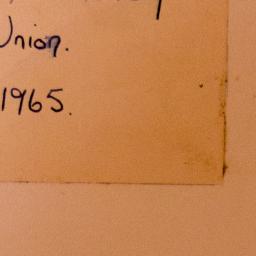 Union.
1965.